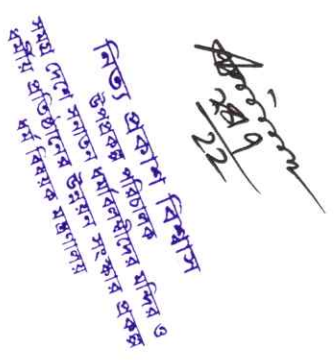 নিত্য প্রকাশ বিশ্বাস
উপপ্রকল্প পরিচালক
সমগ্র দেশে সনাতন ধর্মাবলম্বীদের মন্দির ও
ধর্মীয় প্রতিষ্ঠানের উন্নয়ন সংস্কার প্রকল্প
ধর্ম বিষয়ক মন্ত্রণালয়